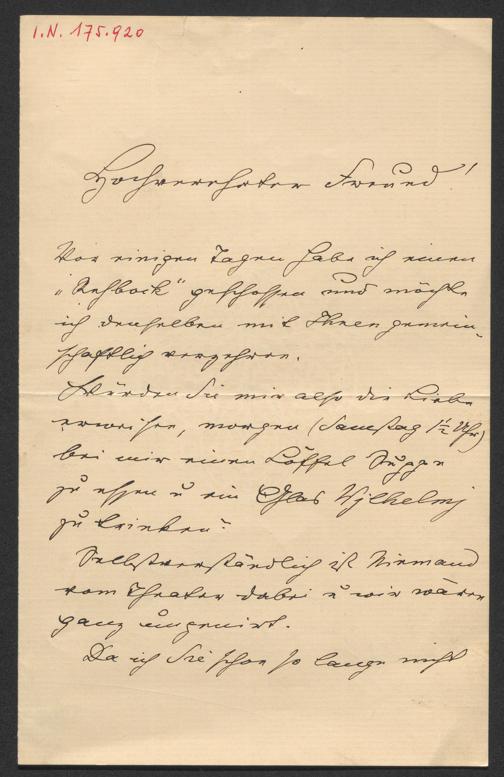 I.N. 175.920
Hochverehrter Freund!
Vor einigen Tagen habe ich einen
„Rehbock“ geschossen und möchte
ich denselben mit Ihnen gemein-
schaftlich verzehren.
Würden Sie mir also die Liebe
erweisen, morgen (Samstag 1½ Uhr)
bei mir einen Löffel Suppe
zu essen u ein Glas Wilhelmj
zu trinken?
Selbstverständlich ist Niemand
vom Theater dabei u wir wären
ganz ungenirt.
Da ich Sie schon so lange nicht